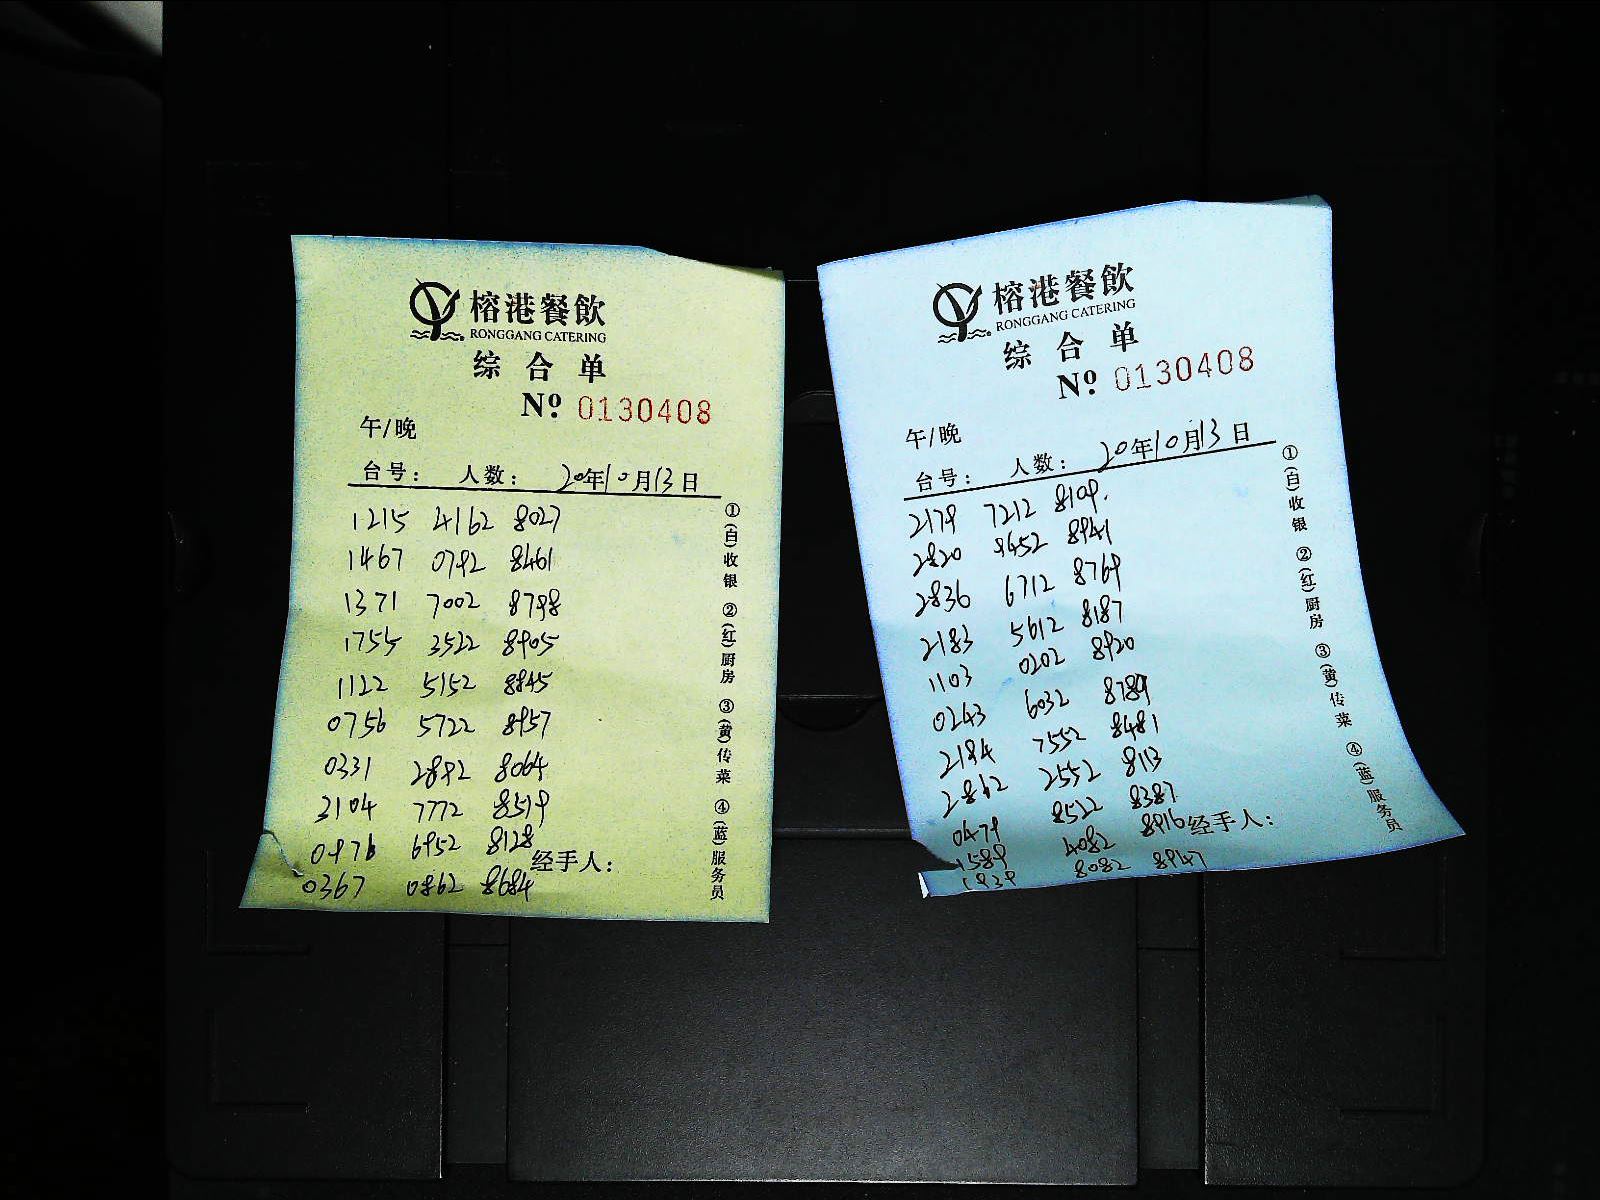 榕港餐飲
RONGGANG CATERING
综合单
№ 0130408
午/晚
台号： 人数： 20年10月13日
1215 4162 8027
1467 0792 8461
1371 7002 8798
1755 3522 8905
1122 5152 8845
0756 5722 8957
0331 2892 8064
3104 7772 8519
0976 6952 8128
经手人：
0367 0862 8684
①(白)收银 ②(红)厨房 ③(黄)传菜 ④(蓝)服务员
榕港餐飲
RONGGANG CATERING
综合单
№ 0130408
午/晚
台号： 人数： 20年10月13日
2179 7212 8109
2820 9452 8941
2836 6712 8769
2183 5612 8187
1103 0202 8920
0243 6032 8789
2184 7552 8481
2862 2552 8113
0479 8522 8387
1589 4082 8916 经手人：
1939 8082 8947
①(白)收银 ②(红)厨房 ③(黄)传菜 ④(蓝)服务员